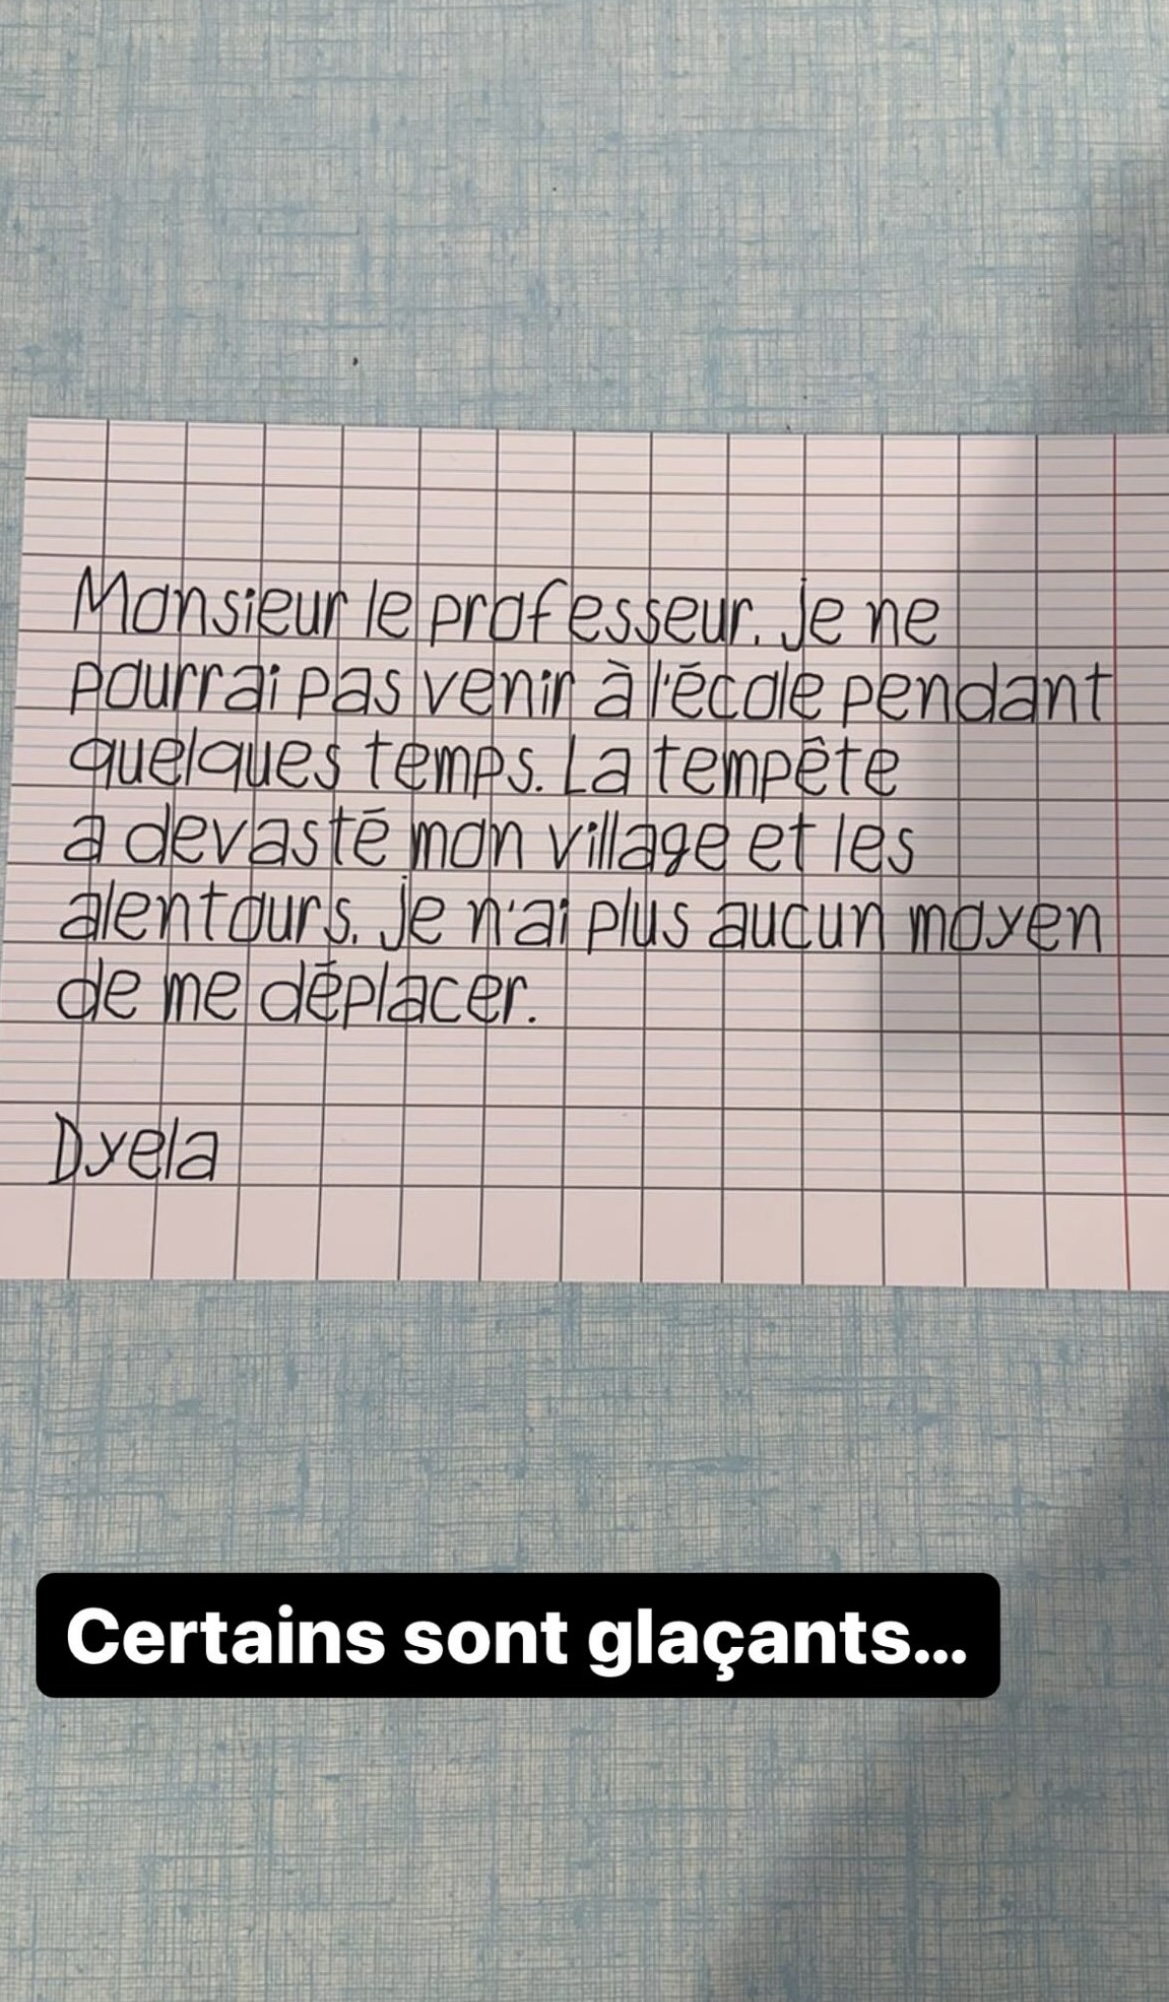 Monsieur le professeur. Je ne
pourrai pas venir à l'école pendant
quelques temps. La tempête
a devasté mon village et les
alentours. Je n'ai plus aucun moyen
de me déplacer.
Dyela
Certains sont glaçants...